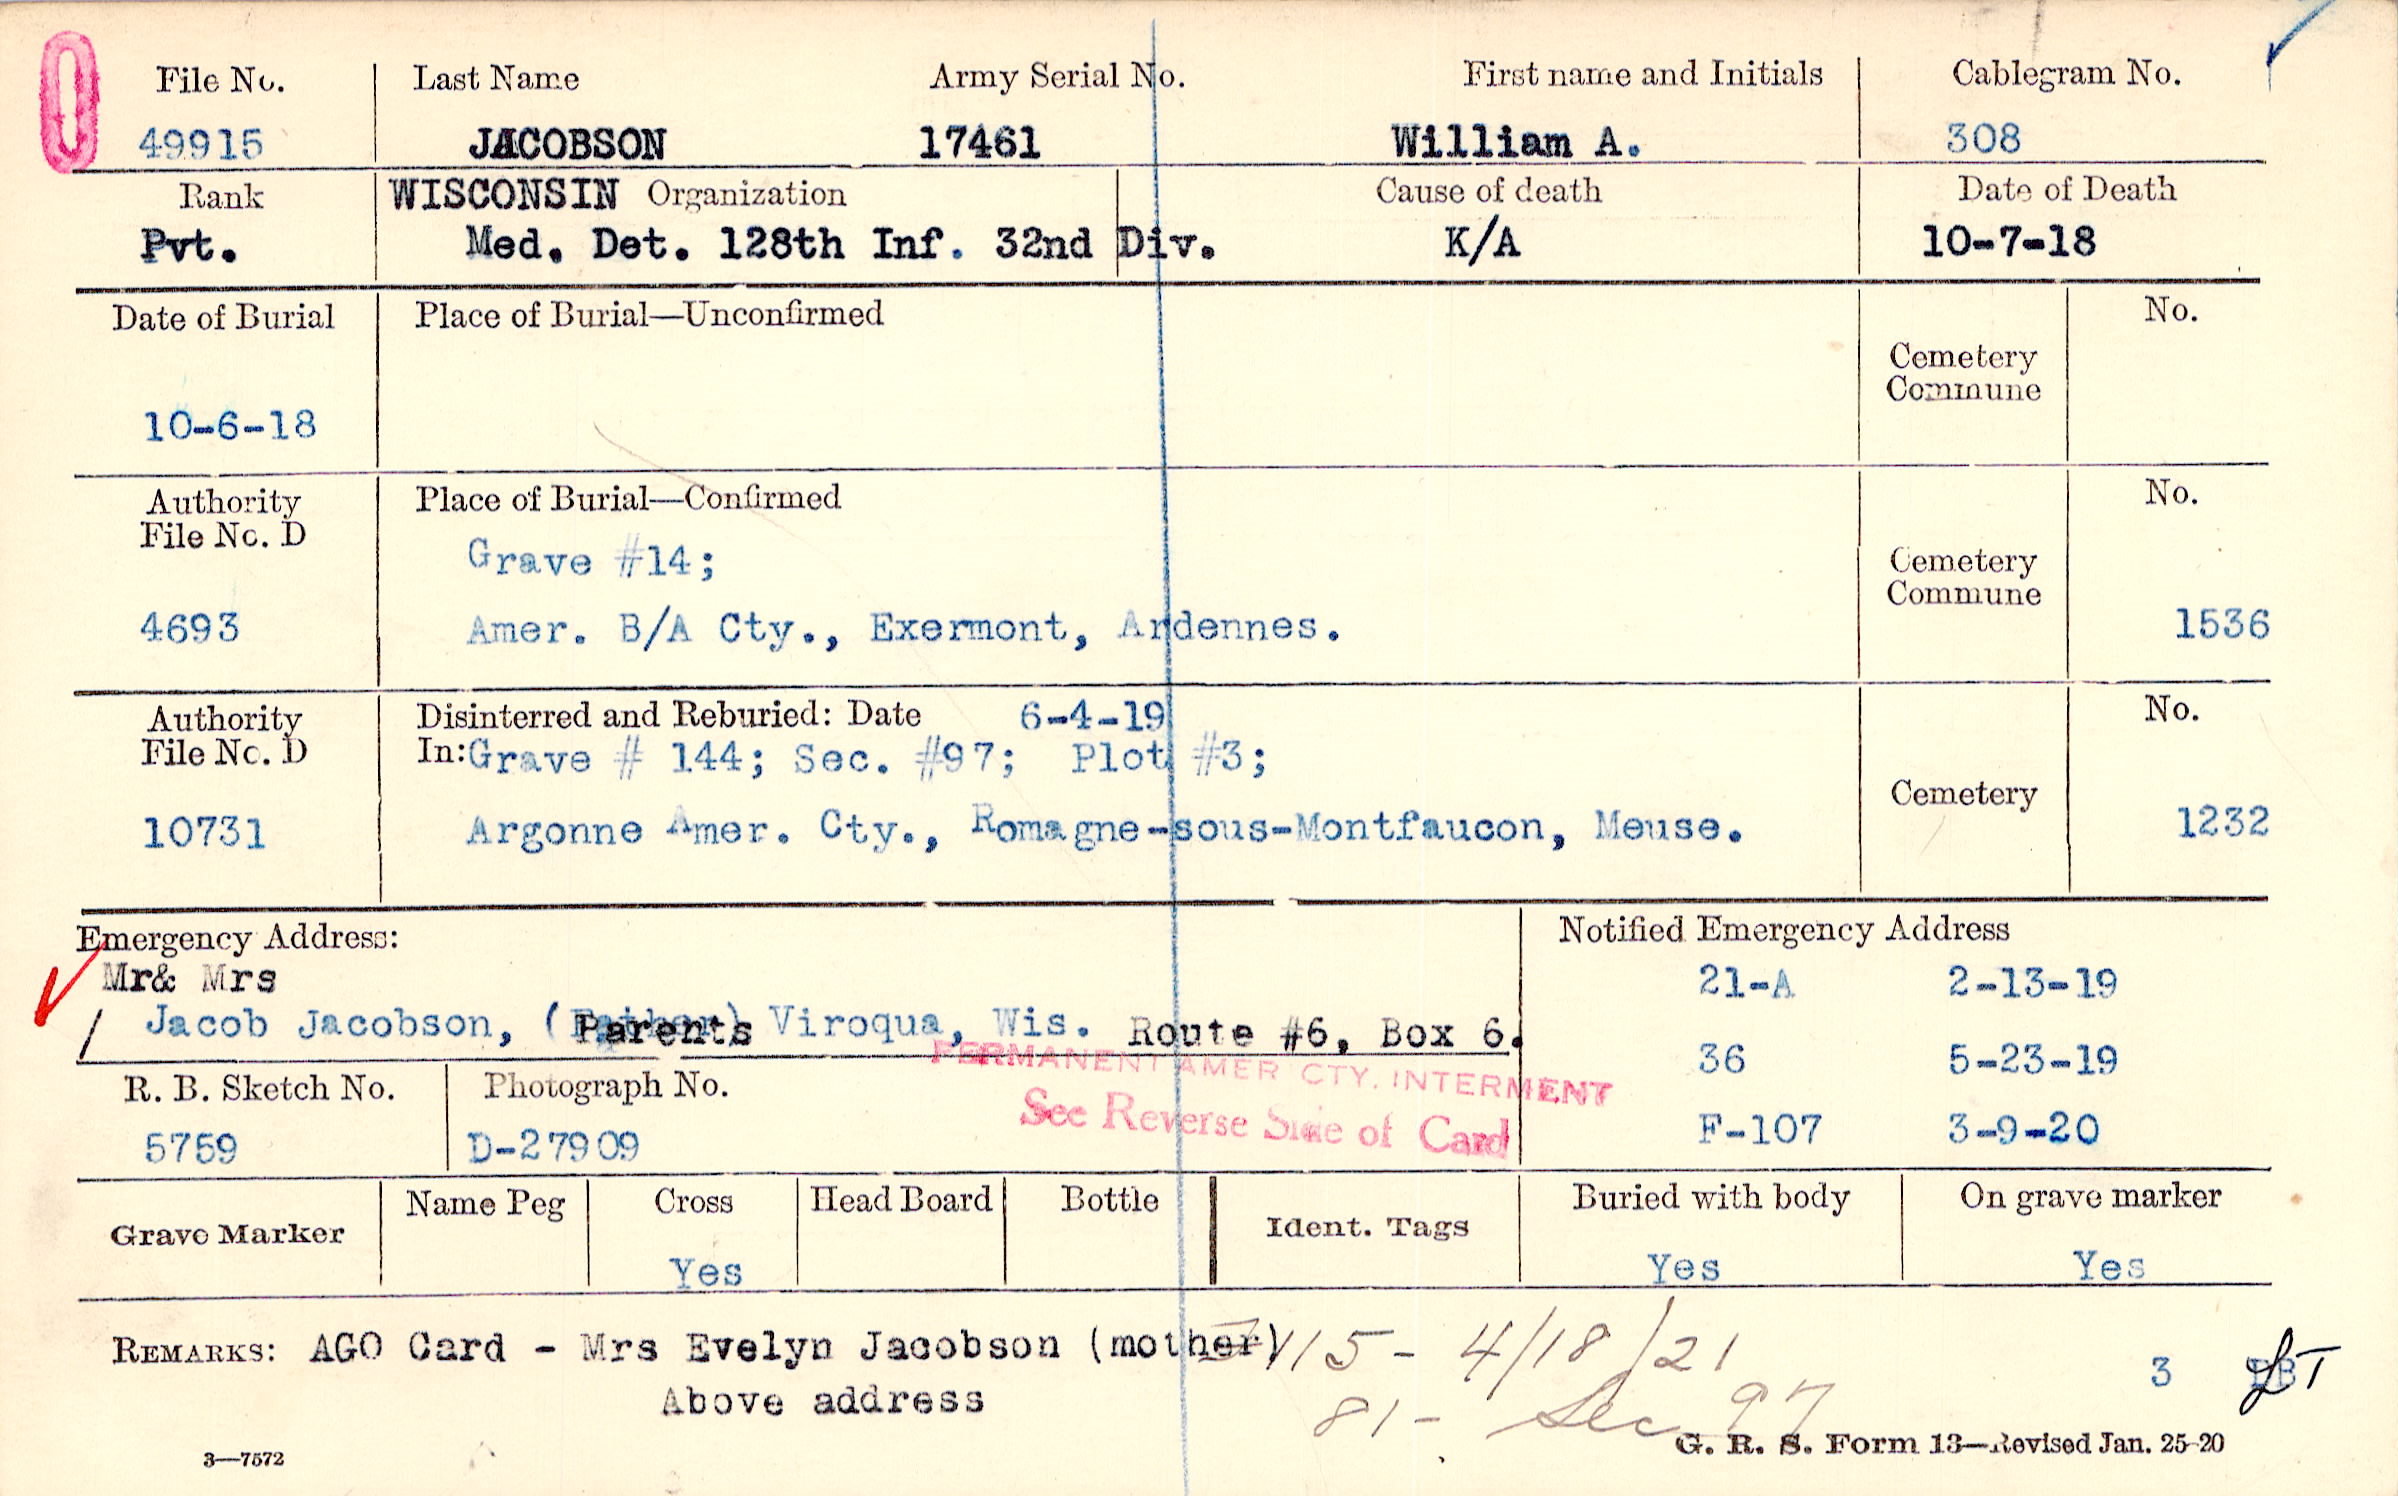 File No. Last Name Army Serial No. First name and Initials Cablegram No.
49915 JACOBSON 17461 William A. 308
Rank WISCONSIN Organization Cause of death Date of Death
Pvt. Med. Det. 128th Inf. 32nd Div. K/A 10-7-18
Date of Burial Place of Burial—Unconfirmed No.
Cemetery
Commune
10-6-18
Authority Place of Burial—Confirmed No.
File No. D
Grave #14; Cemetery
Commune
4693 Amer. B/A Cty., Exermont, Ardennes. 1536
Authority Disinterred and Reburied: Date 6-4-19 No.
File No. D In: Grave # 144; Sec. #97; Plot #3;
Cemetery
10731 Argonne Amer. Cty., Romagne-sous-Montfaucon, Meuse. 1232
Emergency Address: Notified Emergency Address
Mr& Mrs 21-A 2-13-19
Jacob Jacobson, (Parents) Viroqua, Wis. Route #6, Box 6.
36 5-23-19
PERMANENT AMER CTY. INTERMENT
R. B. Sketch No. Photograph No. See Reverse Side of Card
5759 D-27909 F-107 3-9-20
Grave Marker Name Peg Cross Head Board Bottle Ident. Tags Buried with body On grave marker
Yes Yes Yes
REMARKS: AGO Card - Mrs Evelyn Jacobson (mother) 115- 4/18/21
Above address 81- Sec 97 3
3—7572 G. R. S. Form 13—Revised Jan. 25-20